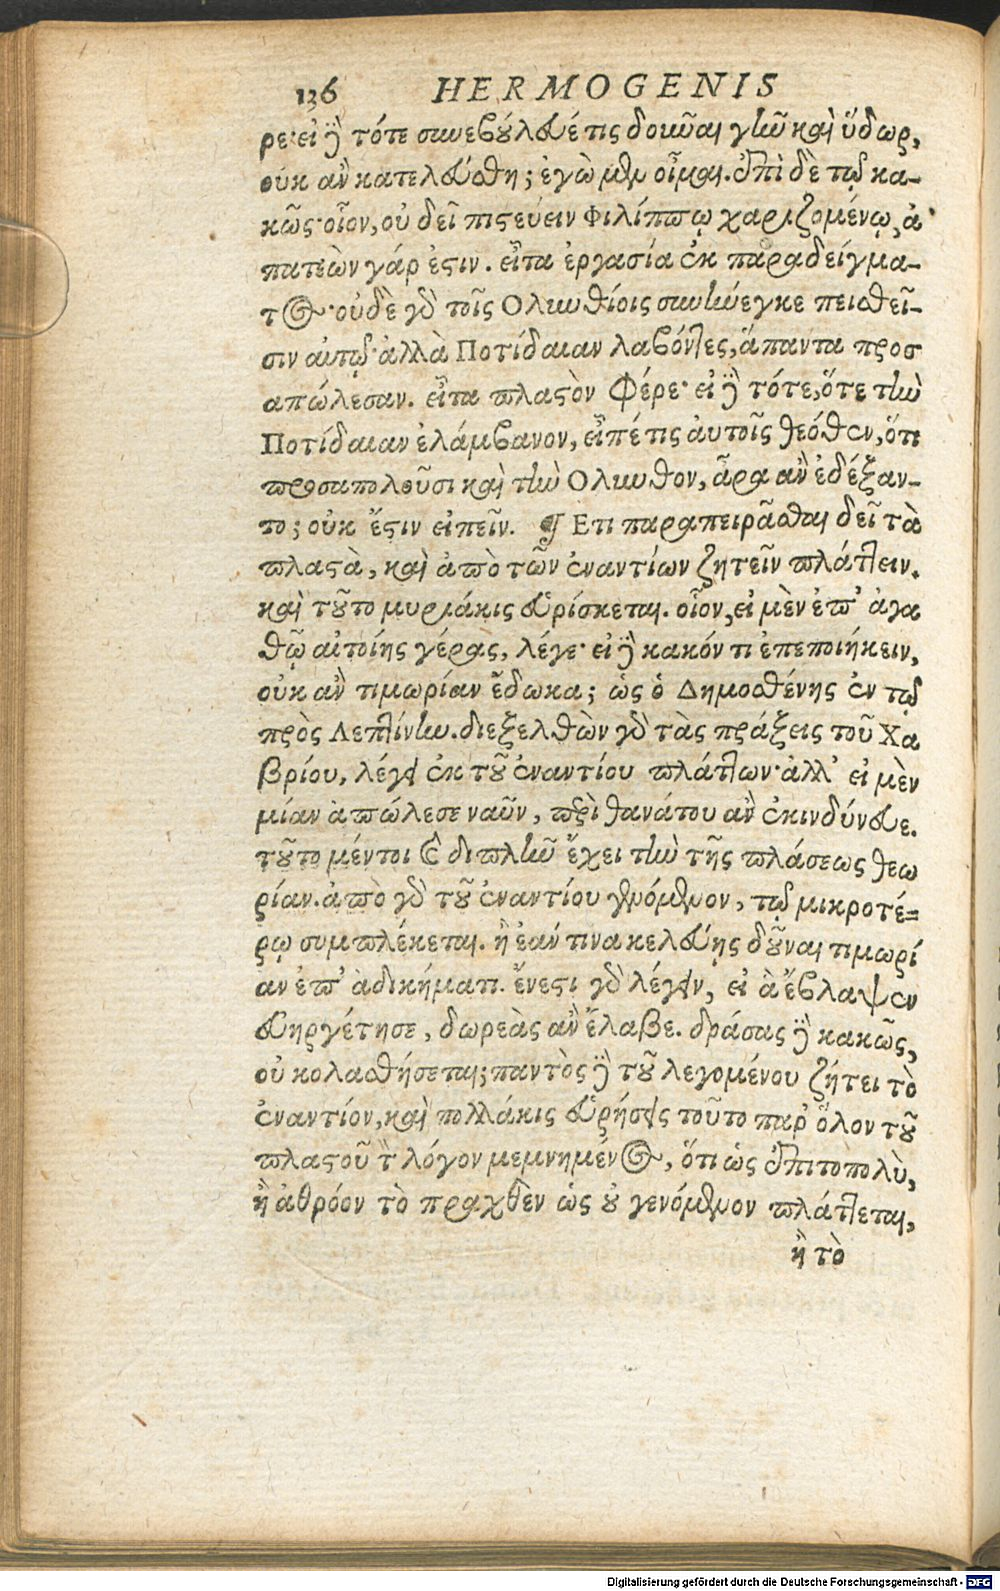 136 HERMOGENIS
ρε· εἰ δὲ τότε συνεβούλευέ τις δοῦναι γῆν καὶ ὕδωρ,
οὐκ ἂν κατελεύσθη; ἐγὼ μὲν οἶμαι. ἐπὶ δὲ τῷ κα-
κῶς· οἷον, οὐ δεῖ πιστεύειν Φιλίππῳ χαριζομένῳ, ἀ
πατεὼν γάρ ἐστιν. εἶτα ἐργασία ἐκ παραδείγμα-
τος· οὐδὲ γὰρ τοῖς Ὀλυνθίοις συνήνεγκε πεισθεῖ-
σιν αὐτῷ· ἀλλὰ Ποτίδαιαν λαβόντες, ἅπαντα προσ
απώλεσαν. εἶτα πλαστὸν Φέρε· εἰ δὲ τότε, ὅτε τὴν
Ποτίδαιαν ἐλάμβανον, εἶπέ τις αὐτοῖς θεόθεν, ὅτι
προσαπολοῦσι καὶ τὴν Ὀλυνθον, ἆρα ἂν ἐδέξαν-
το; οὐκ ἔστιν εἰπεῖν. ¶ Ετι παραπειρᾶσθαι δεῖ τὰ
πλαστὰ, καὶ ἀπὸ τῶν ἐναντίων ζητεῖν πλάττειν.
καὶ τοῦτο μυριάκις εὑρίσκεται. οἷον, εἰ μὲν ἐπ' ἀγα
θῷ αἰτοίης γέρας, λέγε· εἰ δὲ κακόν τι ἐπεποιήκειν,
οὐκ ἂν τιμωρίαν ἔδωκα; ὡς ὁ Δημοσθένης ἐν τῷ
πρὸς Λεπτίνην. διεξελθὼν γὰρ τὰς πράξεις τοῦ Χα
βρίου, λέγει ἐκ τοῦ ἐναντίου πλάττων· ἀλλ' εἰ μὲν
μίαν ἀπώλεσε ναῦν, περὶ θανάτου ἂν ἐκινδύνευε.
τοῦτο μέντοι καὶ διπλῆν ἔχει τὴν τῆς πλάσεως θεω
ρίαν. ἀπὸ γὰρ τοῦ ἐναντίου γενόμενον, τῷ μικροτέ=
ρῳ συμπλέκεται. ἢ ἐάν τινα κελεύῃς δοῦναι τιμωρί
αν ἐπ' ἀδικήματι. ἔνεστι γὰρ λέγειν, εἰ ἃ ἔβλαψεν
εὐηργέτησε, δωρεὰς ἂν ἔλαβε. δράσας δὲ κακῶς,
οὐ κολασθήσεται; παντὸς δὲ τοῦ λεγομένου ζήτει τὸ
ἐναντίον, καὶ πολλάκις εὑρήσεις τοῦτο παρ' ὅλον τοῦ
πλαστοῦ τὸν λόγον μεμνημένος, ὅτι ὡς ἐπιτοπολὺ,
ἢ ἀθρόον τὸ πραχθὲν ὡς οὐ γενόμενον πλάττεται,
ἢ τὸ
Digitalisierung gefördert durch die Deutsche Forschungsgemeinschaft - DFG